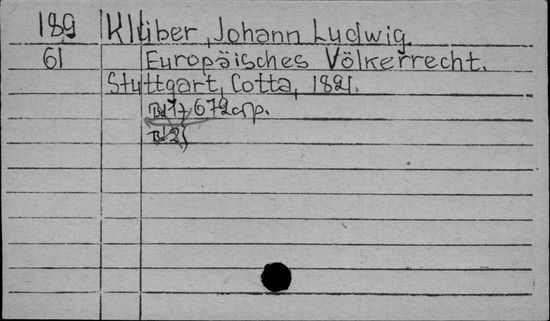 189 Klüber, Johann Ludwig.
61 Europäisches Völkerrecht.
Stuttgart, Cotta, 1821.
Bd 1 672 стр.
Bd 2